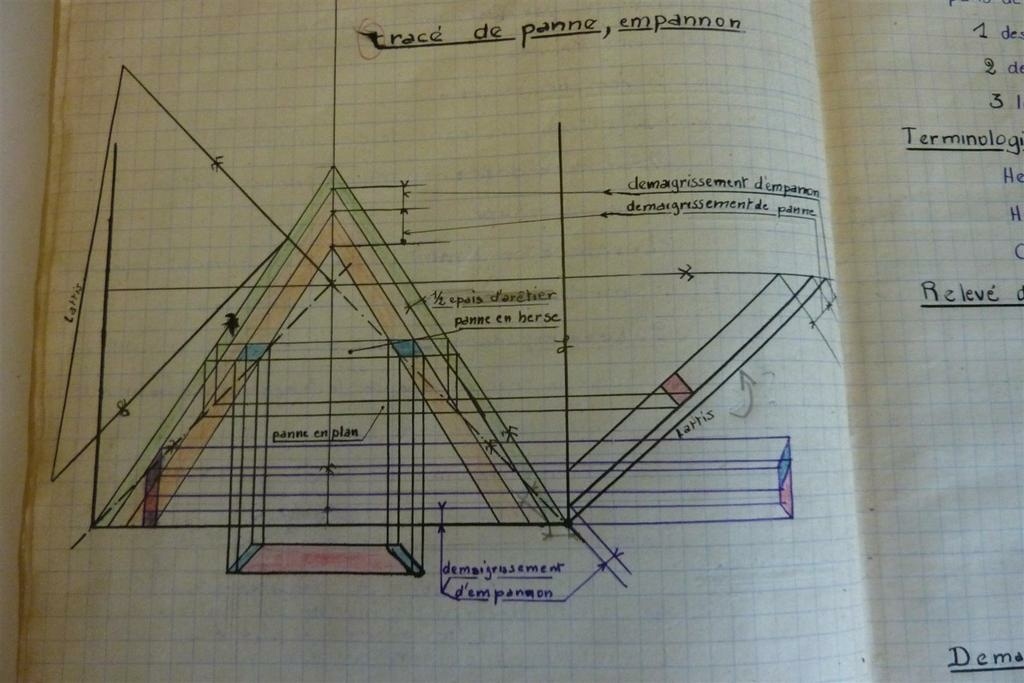 tracé de panne, empannon
demaigrissement d'empanon
demaigrissement de panne
Lattis
½ epais d'arêtier
panne en herse
Lattis
panne en plan
demaigrissement
d'empannon
1 des
2 de
3 l
Terminologi
He
H
C
Relevé d
Dema